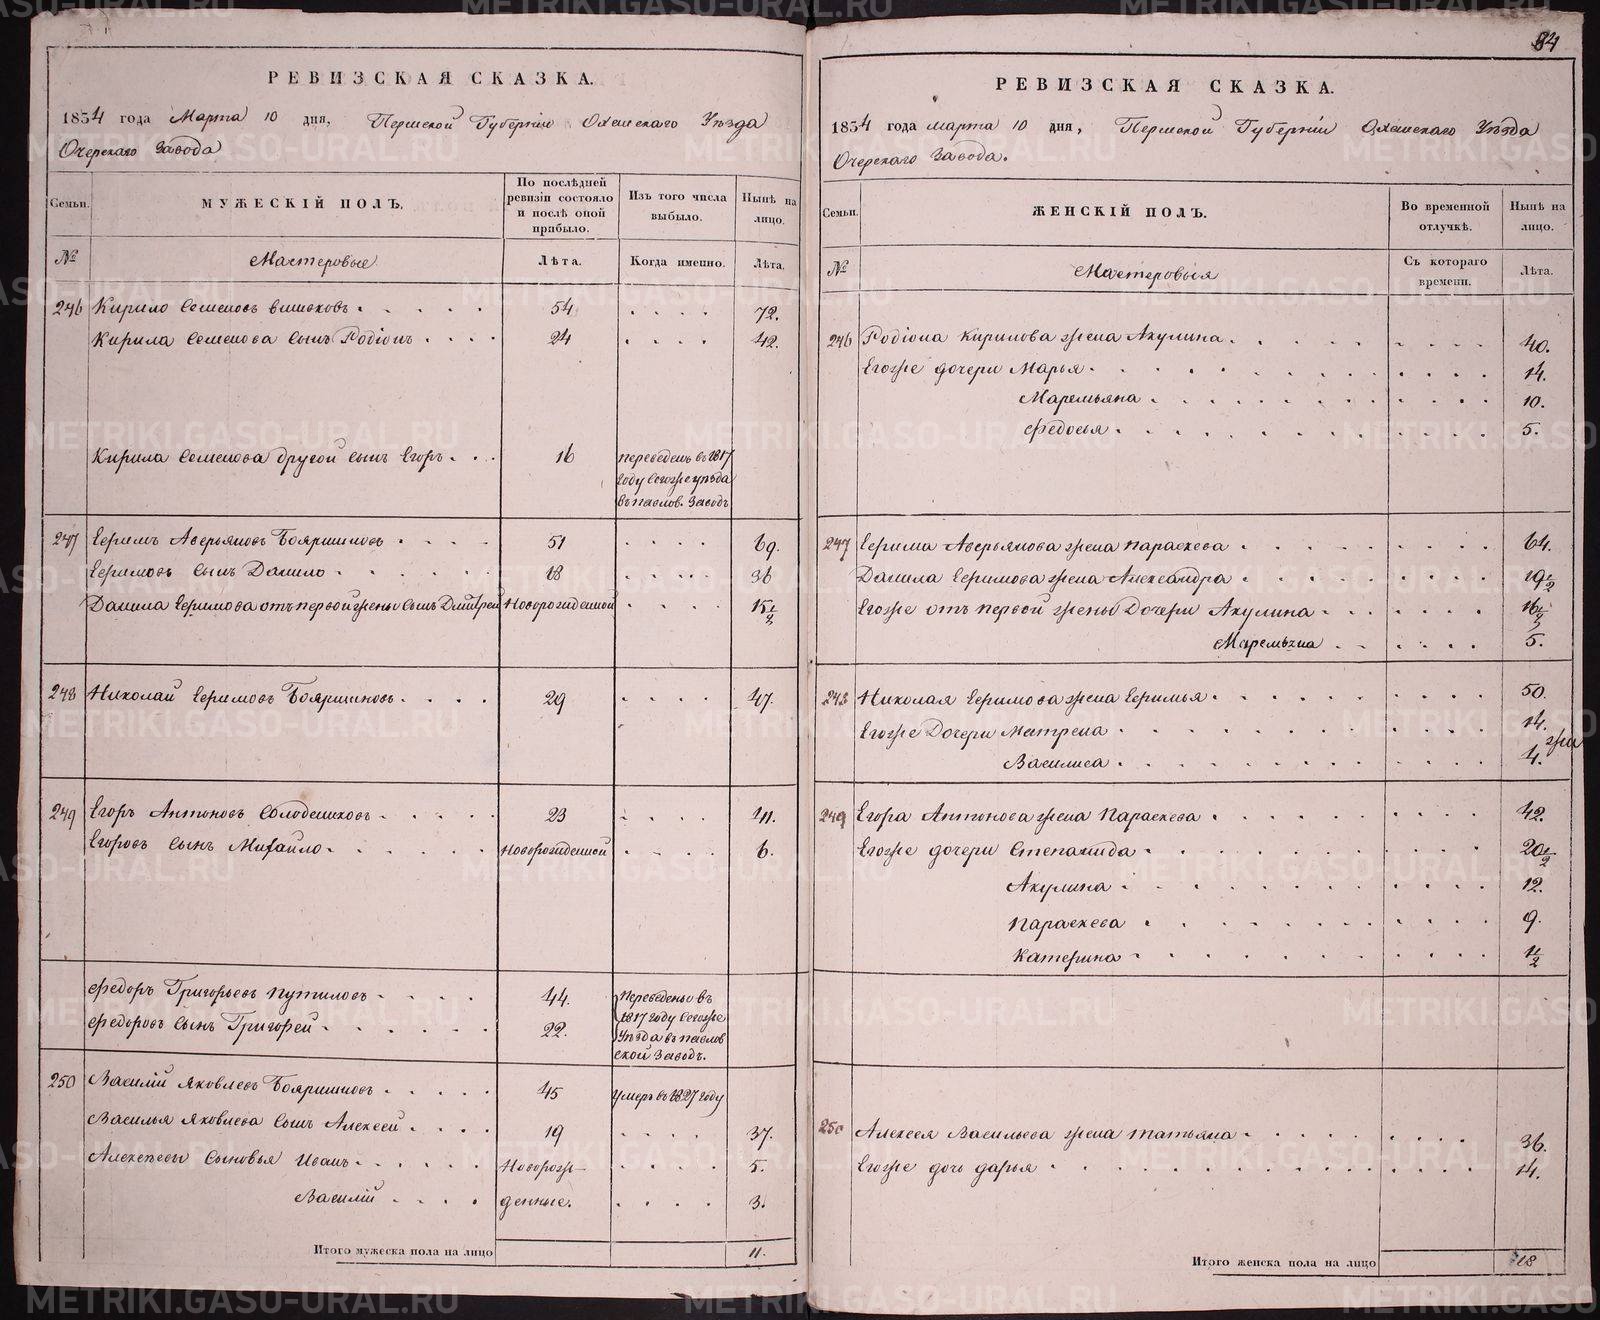 РЕВИЗСКАЯ СКАЗКА.
1834 года Марта 10 дня, Пермской Губернии Оханскаго Уѣзда
Очерскаго Завода
Семьи. МУЖЕСКІЙ ПОЛЪ. По послѣдней ревизіи состояло и послѣ оной прибыло. Изъ того числа выбыло. Нынѣ на лицо.
№ Мастеровые Лѣта. Когда именно. Лѣта.
246 Кирило Семеновъ 54 72.
Кирила Семенова сынъ Родіонъ 24 42.
Кирила Семенова другой сынъ Егоръ 16 переведенъ въ 1817
году тогоже уѣзда
въ павлов. Заводъ
247 Ефимъ Аверьяновъ Бояршиновъ 51 69.
Ефимовъ сынъ Данило 18 36
Данила Ефимова отъ первой жены сынъ Дмитрей Новорожденной 15 1/2
248 Николай Ефимовъ Бояршиновъ 29 47.
249 Егоръ Антоновъ Солодешковъ 23 41.
Егоровъ сынъ Михайло Новорожденной 6.
Федоръ Григорьевъ Путиловъ 44. Переведены въ
Федоровъ сынъ Григорей 22. 1817 году тогоже
Уѣзда въ павлов
ской Заводъ.
250 Василій Яковлевъ Бояршиновъ 45 умеръ въ 1827 году
Василья Яковлева сынъ Алексей 19 37.
Алексеевы сыновья Иванъ Новорож- 5.
Василій денные. 3.
Итого мужеска пола на лицо 11.
84
РЕВИЗСКАЯ СКАЗКА.
1834 года марта 10 дня, Пермской Губерніи Оханскаго Уѣзда
Очерскаго Завода.
Семьи. ЖЕНСКІЙ ПОЛЪ. Во временной отлучкѣ. Нынѣ на лицо.
№ Мастеровыя Съ котораго времени. Лѣта.
246 Родіона Кирилова жена Акулина 40.
Егоже дочери Марья 14.
Маремьяна 10.
Федосья 5.
247 Ефима Аверьянова жена Параскева 64.
Данила Ефимова жена Александра 29 1/2
Егоже отъ первой жены Дочери Акулина 16 1/2
Маремьяна 5.
248 Николая Ефимова жена Ефимья 50.
Егоже Дочери Матрена 14.
Василиса 4.
249 Егора Антонова жена Параскева 42.
Егоже дочери Степанида 20 1/2
Акулина 12.
Параскева 9.
Катерина 1/2
250 Алексея Васильева жена Татьяна 36.
Егоже дочь Дарья 14.
Итого женска пола на лицо 18
METRIKI.GASO-URAL.RU